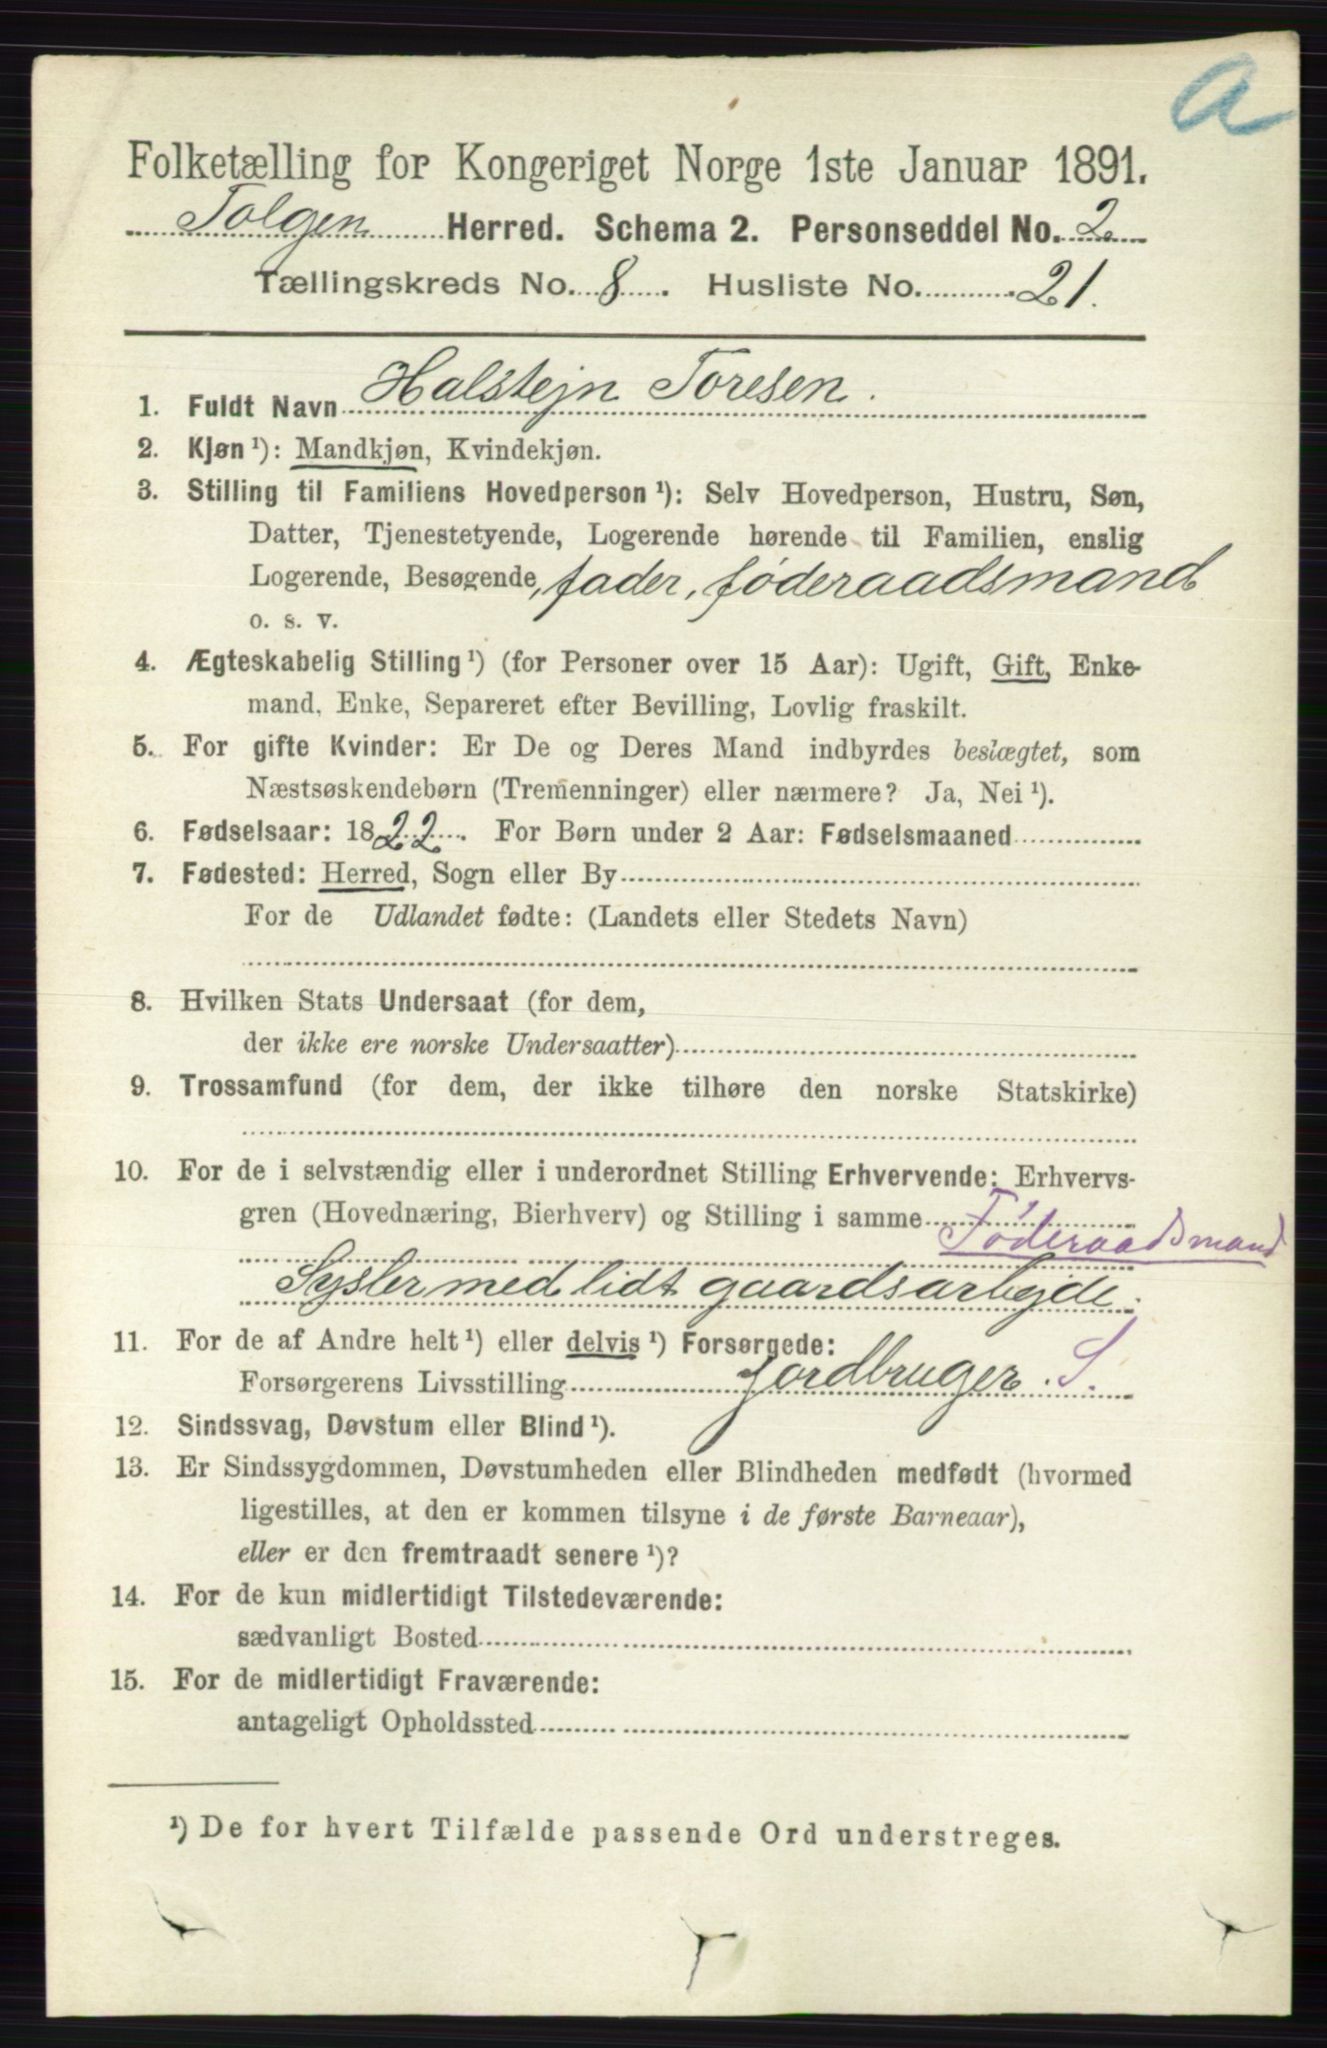 a
Folketælling for Kongeriget Norge 1ste Januar 1891.
Tolgen Herred. Schema 2. Personseddel No. 2
Tællingskreds No. 8. Husliste No. 21.
1. Fuldt Navn Halstejn Toresen.
2. Kjøn ¹): Mandkjøn, Kvindekjøn.
3. Stilling til Familiens Hovedperson ¹): Selv Hovedperson, Hustru, Søn,
Datter, Tjenestetyende, Logerende hørende til Familien, enslig
Logerende, Besøgende, fader, føderaadsmand
o. s. v.
4. Ægteskabelig Stilling ¹) (for Personer over 15 Aar): Ugift, Gift, Enke-
mand, Enke, Separeret efter Bevilling, Lovlig fraskilt.
5. For gifte Kvinder: Er De og Deres Mand indbyrdes beslægtet, som
Næstsøskendebørn (Tremenninger) eller nærmere? Ja, Nei ¹).
6. Fødselsaar: 1822. For Børn under 2 Aar: Fødselsmaaned
7. Fødested: Herred, Sogn eller By
For de Udlandet fødte: (Landets eller Stedets Navn)
8. Hvilken Stats Undersaat (for dem,
der ikke ere norske Undersaatter)
9. Trossamfund (for dem, der ikke tilhøre den norske Statskirke)
10. For de i selvstændig eller i underordnet Stilling Erhvervende: Erhvervs-
gren (Hovednæring, Bierhverv) og Stilling i samme Føderaadsmand
Sysler med lidt gaardsarbejde.
11. For de af Andre helt ¹) eller delvis ¹) Forsørgede:
Forsørgerens Livsstilling jordbruger. S.
12. Sindssvag, Døvstum eller Blind ¹).
13. Er Sindssygdommen, Døvstumheden eller Blindheden medfødt (hvormed
ligestilles, at den er kommen tilsyne i de første Barneaar),
eller er den fremtraadt senere ¹)?
14. For de kun midlertidigt Tilstedeværende:
sædvanligt Bosted
15. For de midlertidigt Fraværende:
antageligt Opholdssted
¹) De for hvert Tilfælde passende Ord understreges.